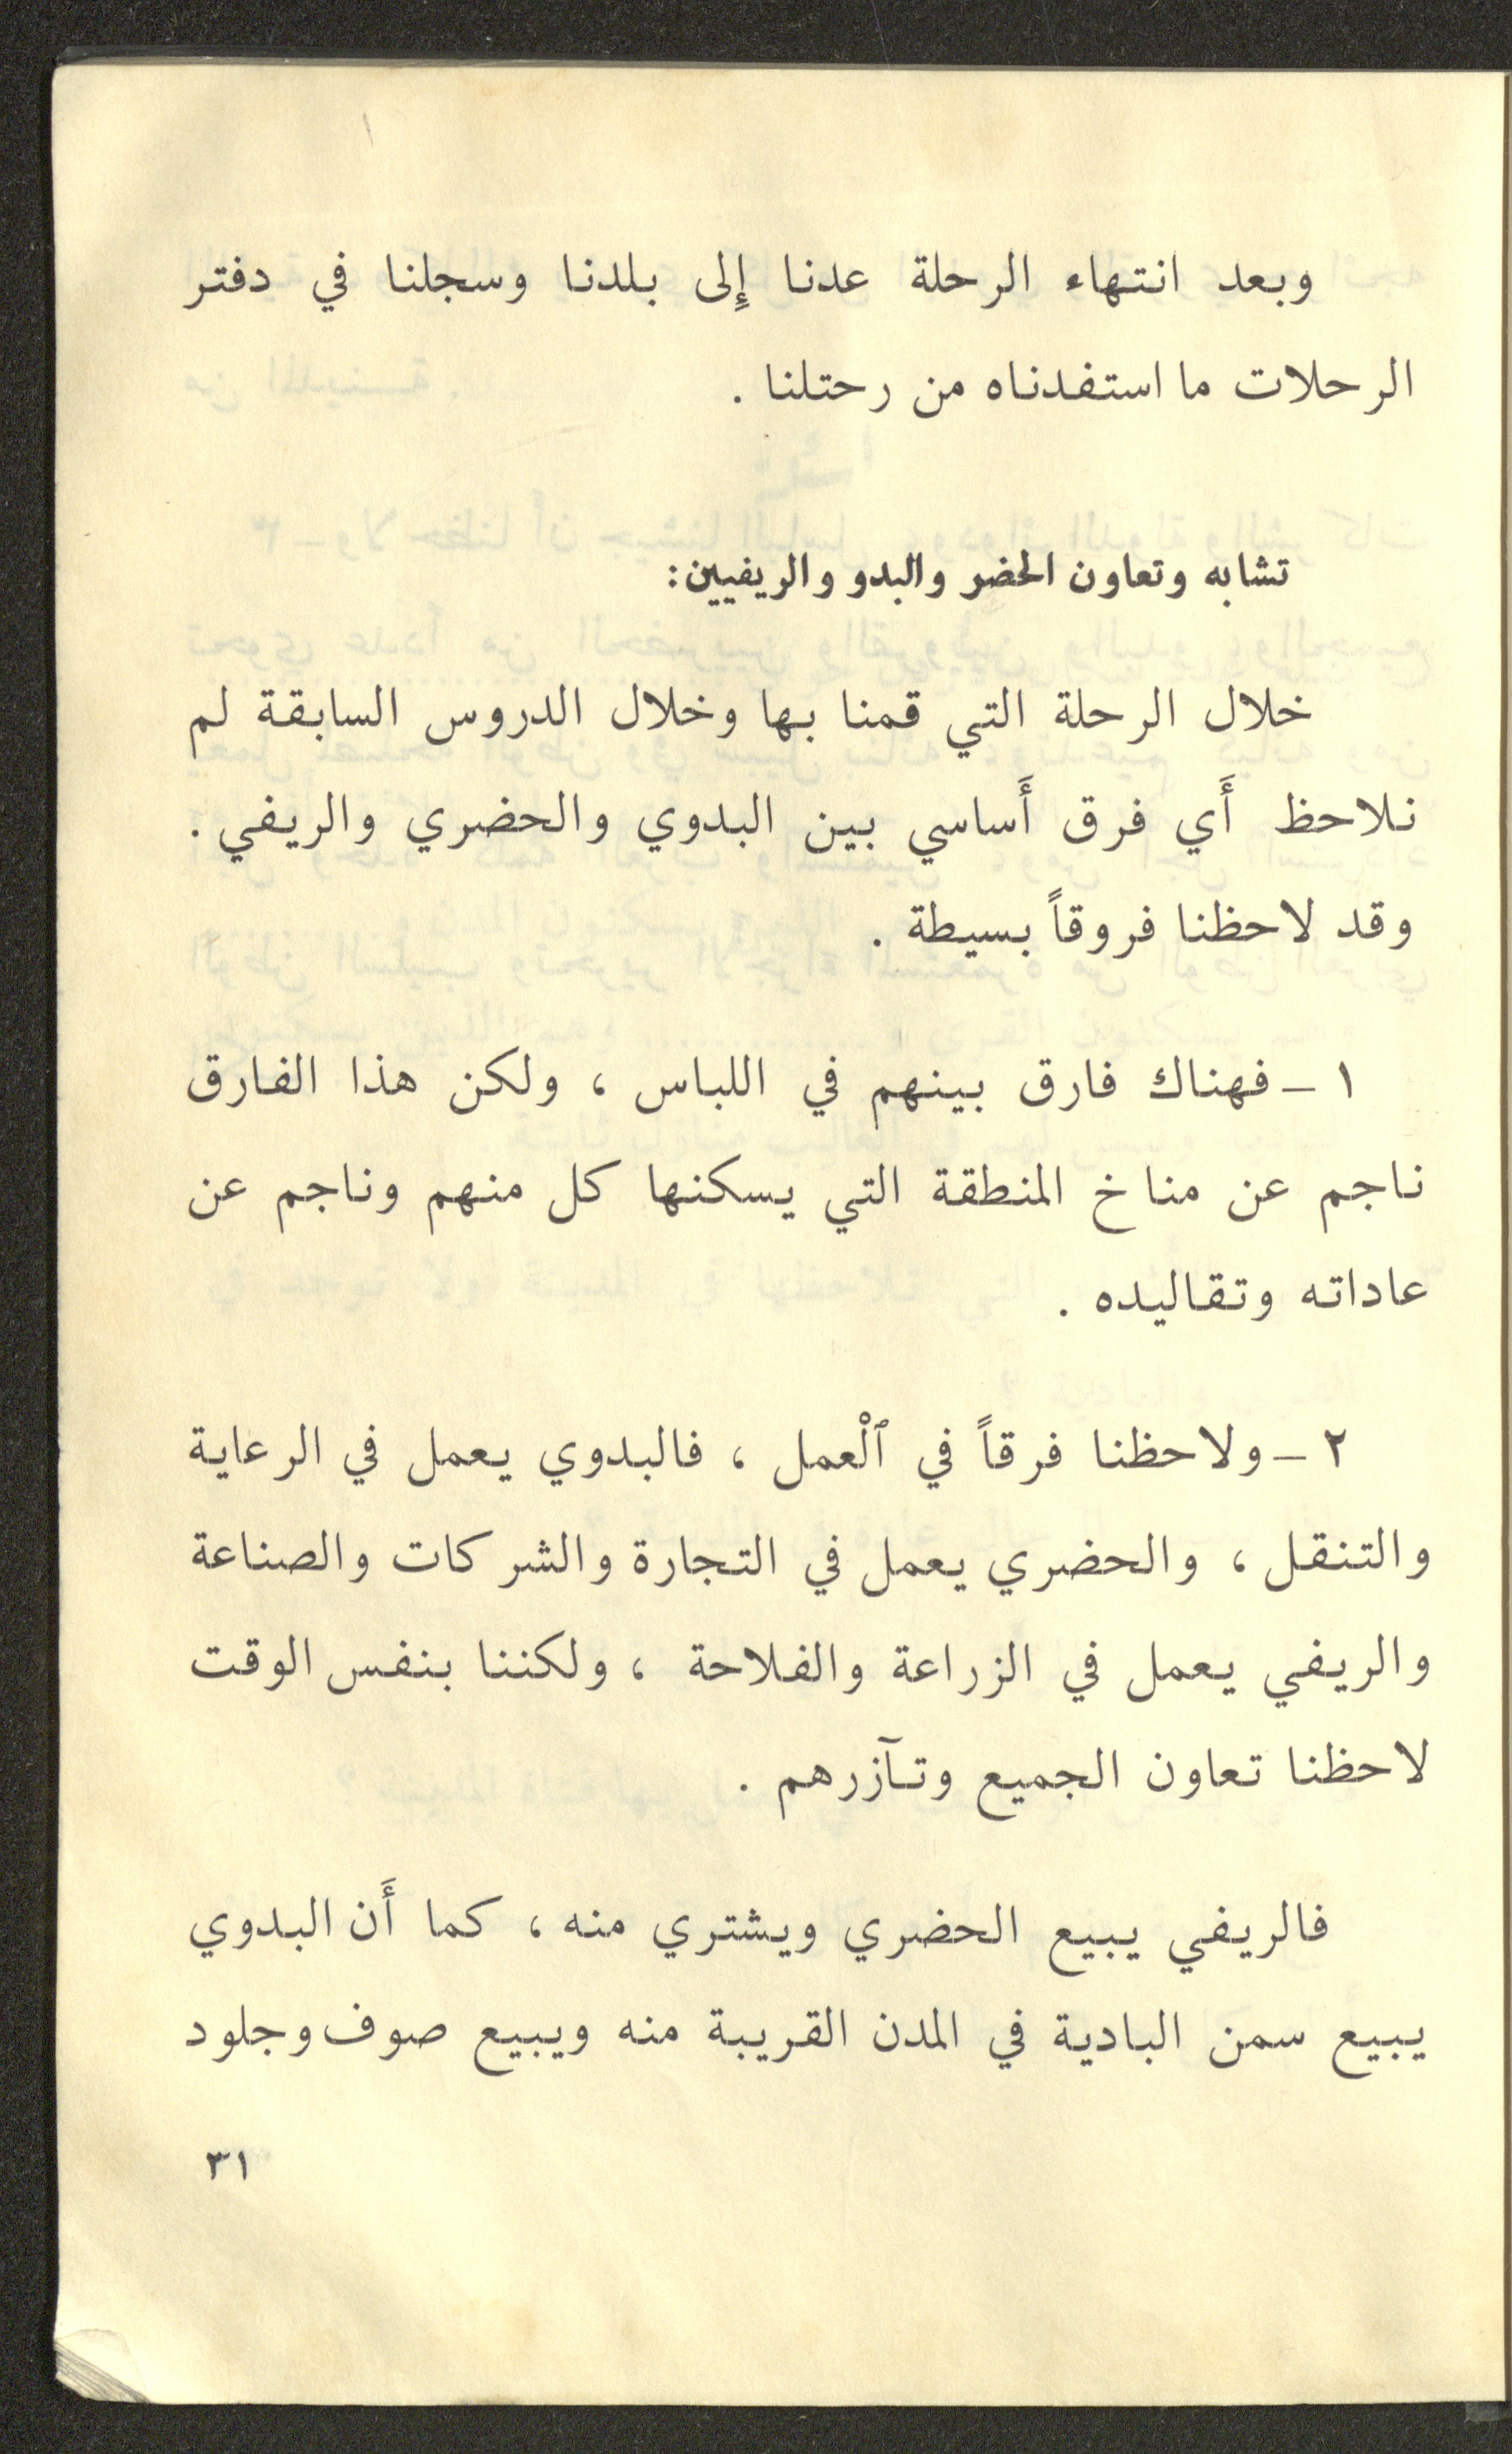 وبعد انتهاء الرحلة عدنا إِلى بلدنا وسجلنا في دفتر
الرحلات ما استفدناه من رحتلنا .
تشابه وتعاون الحضر والبدو والريفيين:
خلال الرحلة التي قمنا بها وخلال الدروس السابقة لم
نلاحظ أَي فرق أَساسي بين البدوي والحضري والريفي .
وقد لاحظنا فروقاً بسيطة .
١ – فهناك فارق بينهم في اللباس ، ولكن هذا الفارق
ناجم عن مناخ المنطقة التي يسكنها كل منهم وناجم عن
عاداته وتقاليده .
٢ – ولاحظنا فرقاً في ٱلْعمل ، فالبدوي يعمل في الرعاية
والتنقل ، والحضري يعمل في التجارة والشركات والصناعة
والريفي يعمل في الزراعة والفلاحة ، ولكننا بنفس الوقت
لاحظنا تعاون الجميع وتآزرهم .
فالريفي يبيع الحضري ويشتري منه ، كما أَن البدوي
يبيع سمن البادية في المدن القريبة منه ويبيع صوف وجلود
٣١